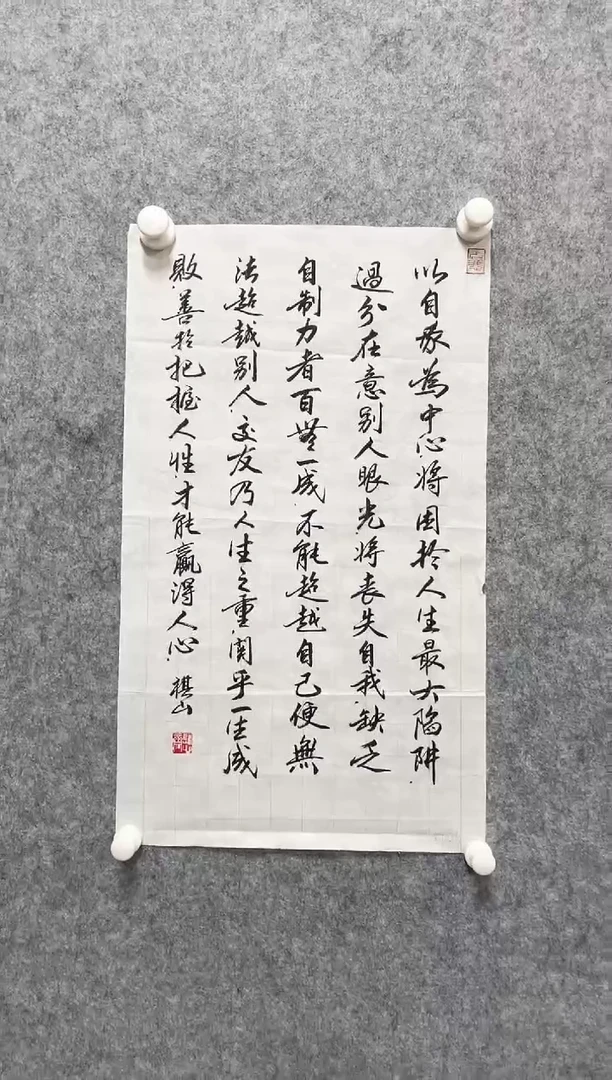 以自我為中心将困於人生最大陷阱
過分在意别人眼光将丧失自我缺乏
自制力者百無一成不能超越自己便無
法超越别人交友乃人生之重関乎一生成
敗善於把握人性才能贏得人心
棋山